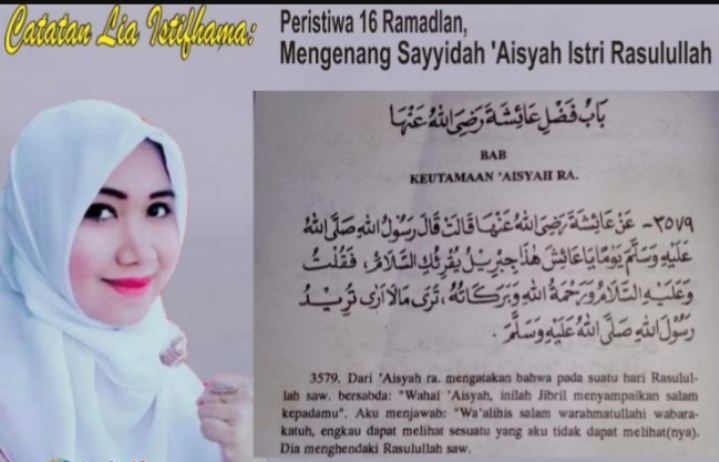 Catatan Lia Istifhama:
Peristiwa 16 Ramadlan,
Mengenang Sayyidah 'Aisyah Istri Rasulullah
بَابُ فَضْلِ عَائِشَةَ رَضِيَ اللهُ عَنْهَا
BAB
KEUTAMAAN 'AISYAH RA.
٣٥٧٩- عَنْ عَائِشَةَ رَضِيَ اللهُ عَنْهَا قَالَتْ قَالَ رَسُولُ اللهِ صَلَّى اللهُ
عَلَيْهِ وَسَلَّمَ يَوْمًا يَا عَائِشَ هٰذَا جِبْرِيلُ يُقْرِئُكِ السَّلَامَ، فَقُلْتُ
وَعَلَيْهِ السَّلَامُ وَرَحْمَةُ اللهِ وَبَرَكَاتُهُ، تَرَى مَالَا أَرَى تُرِيدُ
رَسُولَ اللهِ صَلَّى اللهُ عَلَيْهِ وَسَلَّمَ.
3579. Dari 'Aisyah ra. mengatakan bahwa pada suatu hari Rasulul-
lah saw. bersabda: "Wahai 'Aisyah, inilah Jibril menyampaikan salam
kepadamu". Aku menjawab: "Wa'alihis salam warahmatullahi wabara-
katuh, engkau dapat melihat sesuatu yang aku tidak dapat melihat(nya).
Dia menghendaki Rasulullah saw.